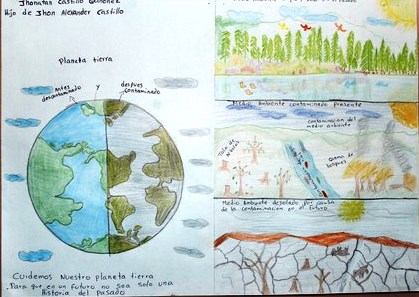 Jhonatan Castillo Quiñonez
Hijo de Jhon Alexander Castillo
Planeta tierra
antes
descontaminado
y
despues
contaminado
Cuidemos Nuestro planeta tierra
Para que en un futuro no sea solo una
Historia del pasado
Medio Ambiente contaminado presente
contaminacion del
medio ambiente
Tala de
Quema de
bosques
Medio Ambiente desolado por causa
de la contaminacion en el futuro